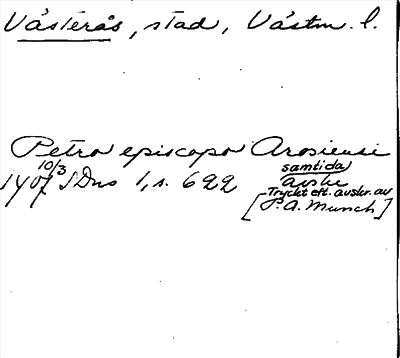 Västerås, stad, Västm. l.
Petro episcopo Arosiensi
10/3 samtida
1407 SDns 1, s. 622 avskr
Tryckt eft. avskr. av
[P. A. Munch]